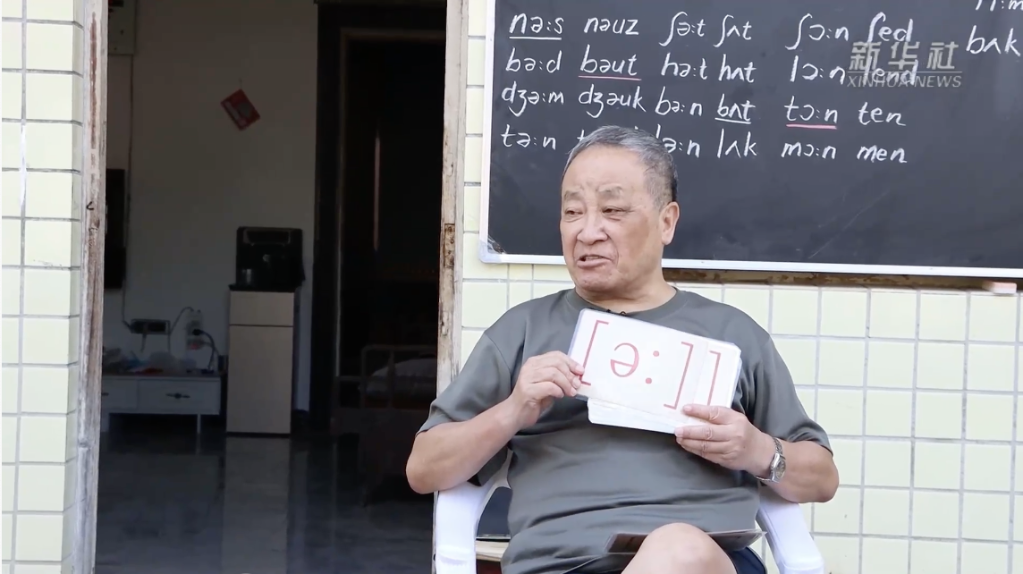 nə:s nəuz ʃə:t ʃʌt ʃɔ:n ʃed
bə:d bəut hə:t hʌt lɔ:n lend bʌk
dʒə:m dʒəuk bə:n bʌt tɔ:n ten
tə:n lʌk mɔ:n men
新华社
XINHUA NEWS
[ə:]